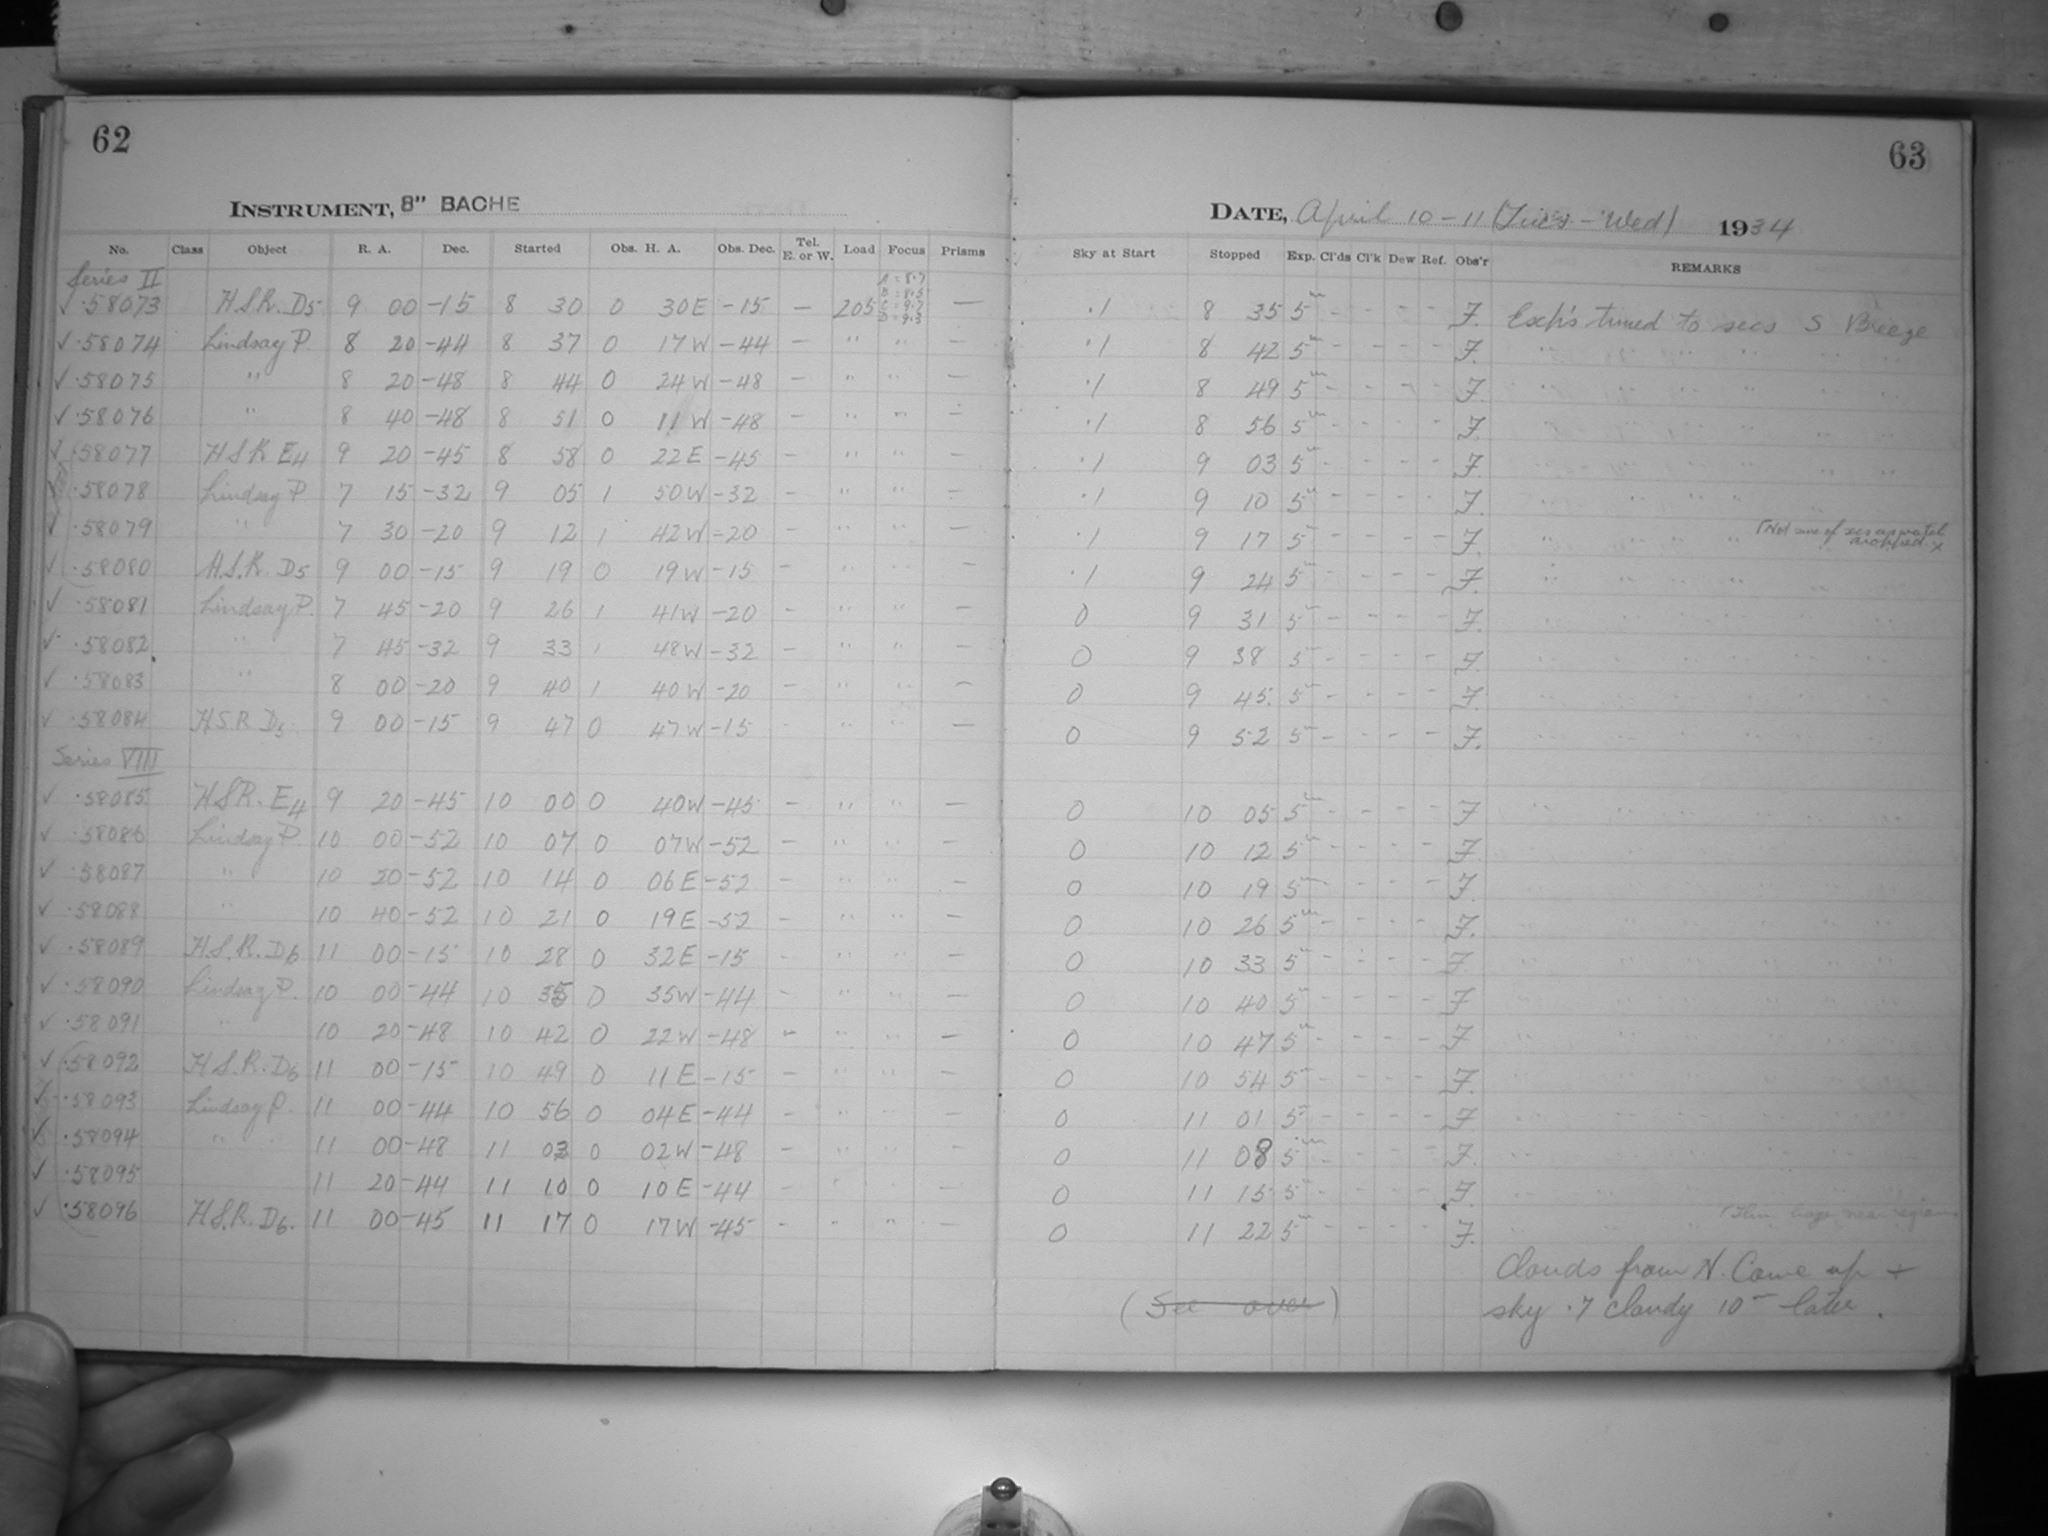 62
INSTRUMENT, 8" BACHE
No. Class Object R. A. Dec. Started Obs. H. A. Obs. Dec. Tel. E. or W. Load Focus Prisms
Series II A = 8.7 B = 8.5 C = 9.7 D = 9.3
✓ .58073 H.S.R. D5 9 00 -15 8 30 0 30E -15 — 205 —
✓ .58074 Lindsay P. 8 20 -44 8 37 0 17W -44 - " " -
✓ .58075 " 8 20 -48 8 44 0 24W -48 - " " -
✓ .58076 " 8 40 -48 8 51 0 11W -48 - " " -
✓ .58077 H.S.R E4 9 20 -45 8 58 0 22E -45 - " " -
✓ .58078 Lindsay P 7 15 -32 9 05 1 50W -32 - " " -
✓ .58079 " 7 30 -20 9 12 1 42W -20 - " " -
✓ .58080 H.S.R. D5 9 00 -15 9 19 0 19W -15 - " " -
✓ .58081 Lindsay P. 7 45 -20 9 26 1 41W -20 - " " -
✓ .58082 " 7 45 -32 9 33 1 48W -32 - " " -
✓ .58083 " 8 00 -20 9 40 1 40W -20 - " " -
✓ .58084 H.S.R D5 9 00 -15 9 47 0 47W -15 - " " -
Series VIII
✓ .58085 H.S.R. E4 9 20 -45 10 00 0 40W -45 - " " -
✓ .58086 Lindsay P. 10 00 -52 10 07 0 07W -52 - " " -
✓ .58087 " 10 20 -52 10 14 0 06E -52 - " " -
✓ .58088 " 10 40 -52 10 21 0 19E -52 - " " -
✓ .58089 H.S.R. D6 11 00 -15 10 28 0 32E -15 - " " -
✓ .58090 Lindsay P. 10 00 -44 10 35 0 35W -44 - " " -
✓ .58091 " 10 20 -48 10 42 0 22W -48 - " " -
✓ .58092 H.S.R. D6 11 00 -15 10 49 0 11E -15 - " " -
✓ .58093 Lindsay P. 11 00 -44 10 56 0 04E -44 - " " -
✓ .58094 " 11 00 -48 11 03 0 02W -48 - " " -
✓ .58095 11 20 -44 11 10 0 10E -44 - " " -
✓ .58096 H.S.R. D6. 11 00 -45 11 17 0 17W -45 - " " -
63
DATE, April 10 - 11 (Tues - Wed) 1934
Sky at Start Stopped Exp. Cl'ds Cl'k Dew Ref. Obs'r REMARKS
.1 8 35 5m - - - - F. Exp's timed to secs S Breeze
.1 8 42 5m - - - - F.
.1 8 49 5m - - - - F.
.1 8 56 5m - - - - F.
.1 9 03 5m - - - - F.
.1 9 10 5m - - - - F.
.1 9 17 5m - - - - F. (Not sure of secs as watch dropped. x
.1 9 24 5m - - - - F.
0 9 31 5m - - - - F.
0 9 38 5m - - - - F.
0 9 45. 5m - - - - F.
0 9 52 5m - - - - F.
0 10 05 5m - - - - F
0 10 12 5m - - - - F.
0 10 19 5m - - - - F.
0 10 26 5m - - - - F.
0 10 33 5m - - - - F
0 10 40 5m - - - - F
0 10 47 5m - - - - F
0 10 54 5m - - - - F.
0 11 01 5m - - - - F
0 11 08 5m - - - - F.
0 11 15 5m - - - - F.
0 11 22 5m - - - - F. (Thin haze near region
Clouds from N. Come up +
(See over) sky .7 cloudy 10m later.